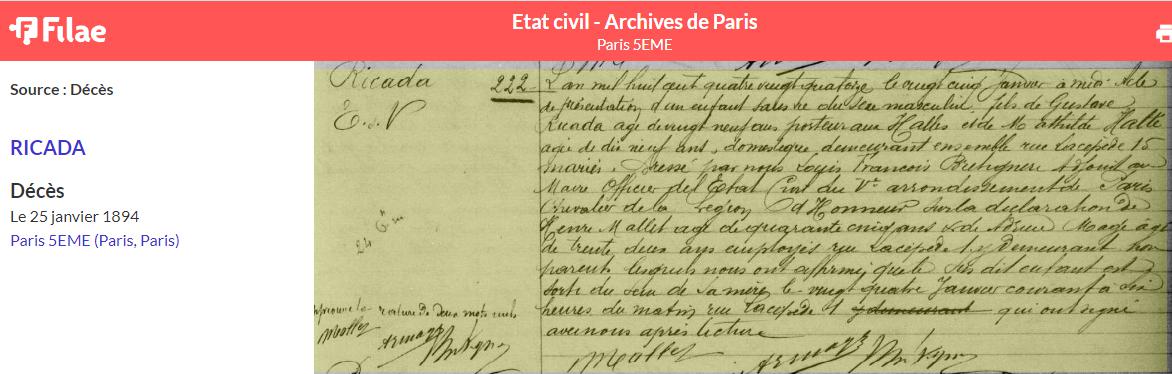 Filae
Etat civil - Archives de Paris
Paris 5EME
Source : Décès
RICADA
Décès
Le 25 janvier 1894
Paris 5EME (Paris, Paris)
Ricada
222
L'an mil huit cent quatre vingt quatorze le vingt cinq Janvier à midi Acte
de présentation d'un enfant sans vie du sexe masculin, fils de Gustave
Ricada age de vingt neuf ans porteur aux Halles et de Mathilde Hallé
agée de dix neuf ans, domestique demeurant ensemble rue Lacépède 15
mariés. Dressé par nous Louis François Adjoint au
Maire Officier de l'Etat Civil du Ve arrondissement de Paris
Chevalier de la Legion d'Honneur sur la declaration de
Henri Mallet agé de quarante cinq ans et de agé
de trente deux ans employés rue Lacépède 1 y demeurant non
parents lesquels nous ont affirmé que le sus dit enfant est
sorti du sein de sa mère le vingt quatre Janvier courant à six
heures du matin rue Lacépède 1 y demeurant qui ont signé
avec nous après lecture
approuvé la rature de deux mots nuls
Mallet
Mallet